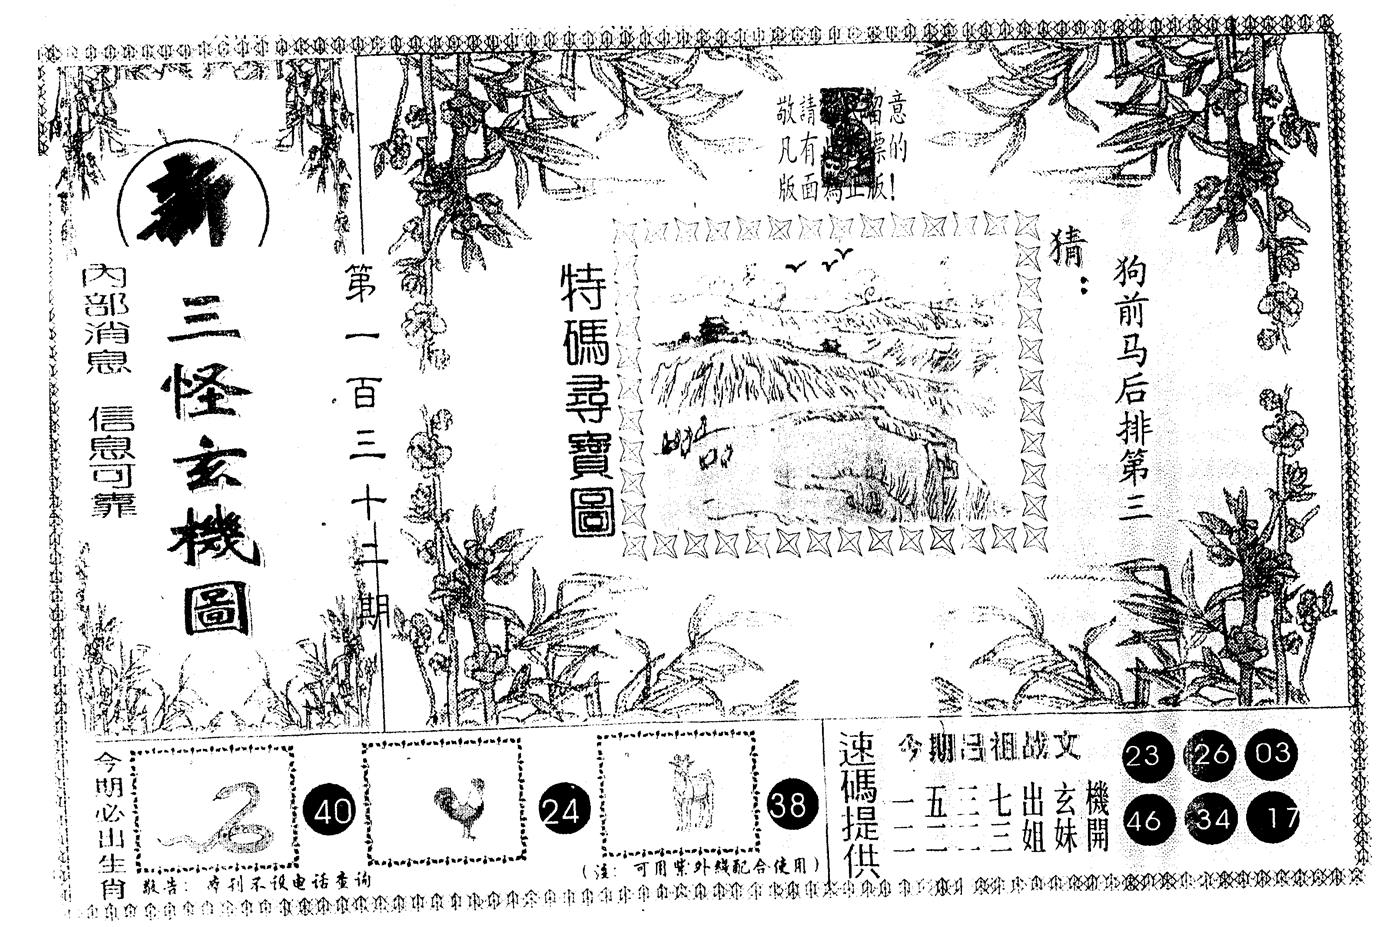 新
三怪玄機圖
內部消息 信息可靠
第一百三十二期
敬請 留意
凡有 標的
版面為正版!
特碼尋寶圖
猜:
狗前马后排第三
今期必出生肖
40
24
38
敬告: 本刊不设电话查询
(注: 可用紫外线配合使用)
速碼提供
今期吕祖战文
一五三七出玄機
二二二三姐妹開
23 26 03
46 34 17